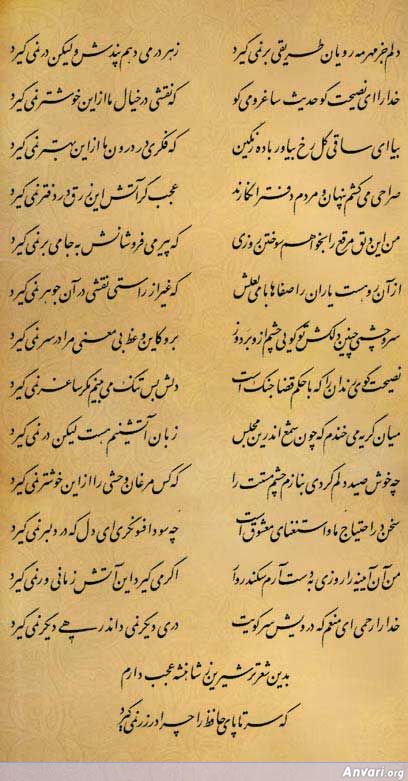 دلم جز مهر مه رویان طریقی بر نمی گیرد ز هر در می دهم پندش ولیکن در نمی گیرد
خدا را ای نصیحت گو حدیث ساغر و می گو که نقشی در خیال ما از این خوشتر نمی گیرد
بیا ای ساقی گل رخ بیاور باده رنگین که فکری در درون ما از این بهتر نمی گیرد
صراحی می کشم پنهان و مردم دفتر انگارند عجب گر آتش این زرق در دفتر نمی گیرد
من این دلق مرقع را بخواهم سوختن روزی که پیر می فروشانش به جامی بر نمی گیرد
از آن رو هست یاران را صفاها با می لعلش که غیر از راستی نقشی در آن جوهر نمی گیرد
سر و چشمی چنین دلکش تو گویی چشم از او بردوز برو کاین وعظ بی معنی مرا در سر نمی گیرد
نصیحت گوی رندان را که با حکم قضا جنگ است دلش بس تنگ می بینم مگر ساغر نمی گیرد
میان گریه می خندم که چون شمع اندرین مجلس زبان آتشینم هست لیکن در نمی گیرد
چه خوش صید دلم کردی بنازم چشم مستت را که کس مرغان وحشی را از این خوشتر نمی گیرد
سخن در احتیاج ما و استغنای معشوق است چه سود افسونگری ای دل که در دلبر نمی گیرد
من آن آیینه را روزی به دست آرم سکندروار اگر می گیرد این آتش زمانی ور نمی گیرد
خدا را رحمی ای منعم که درویش سر کویت دری دیگر نمی داند رهی دیگر نمی گیرد
بدین شعر تر شیرین ز شاهنشه عجب دارم
که سر تا پای حافظ را چرا در زر نمی گیرد
Anvari.org